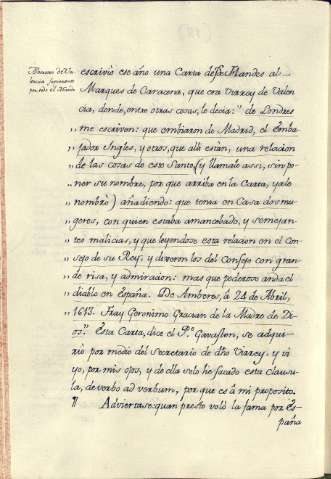 escrivió ese año una Carta desde Flandes al
Marques de Caracena, que era Virrey de Valen
cia, donde, entre otras cosas, le decia: "de Londres
,, me escriven: que embiaron de Madrid, el Emba
,, jador Ingles, y otros, que alli están, una relacion
,, de las cosas de este Santo (y llamale assi, sin po
,, ner su nombre, por que arriba en la Carta, ya le
,, nombró) añadiendo: que tenia en Casa dos mu
,, geres, con quien estaba amancebado, y semejan
,, tes malicias, y que leyendose esta relacion en el Con
,, sejo de su Rey, y los del Consejo con gran
,, de risa, y admiracion: mas que poderoso anda el
,, diablo en España. De Amberes, á 24 de Abril,
,, 1613. Fray Geronimo Gracian de la Madre de Di
os". Esta Carta, dice el P.º Gavaston, se adqui
rió por medio del Secretario de dho Virrey, y vi
yo, por mis ojos, y de ella solo he sacado esta clausu
la, de verbo ad verbum, por que es á mi proposito.
Adviertase quan presto voló la fama por Es
paña